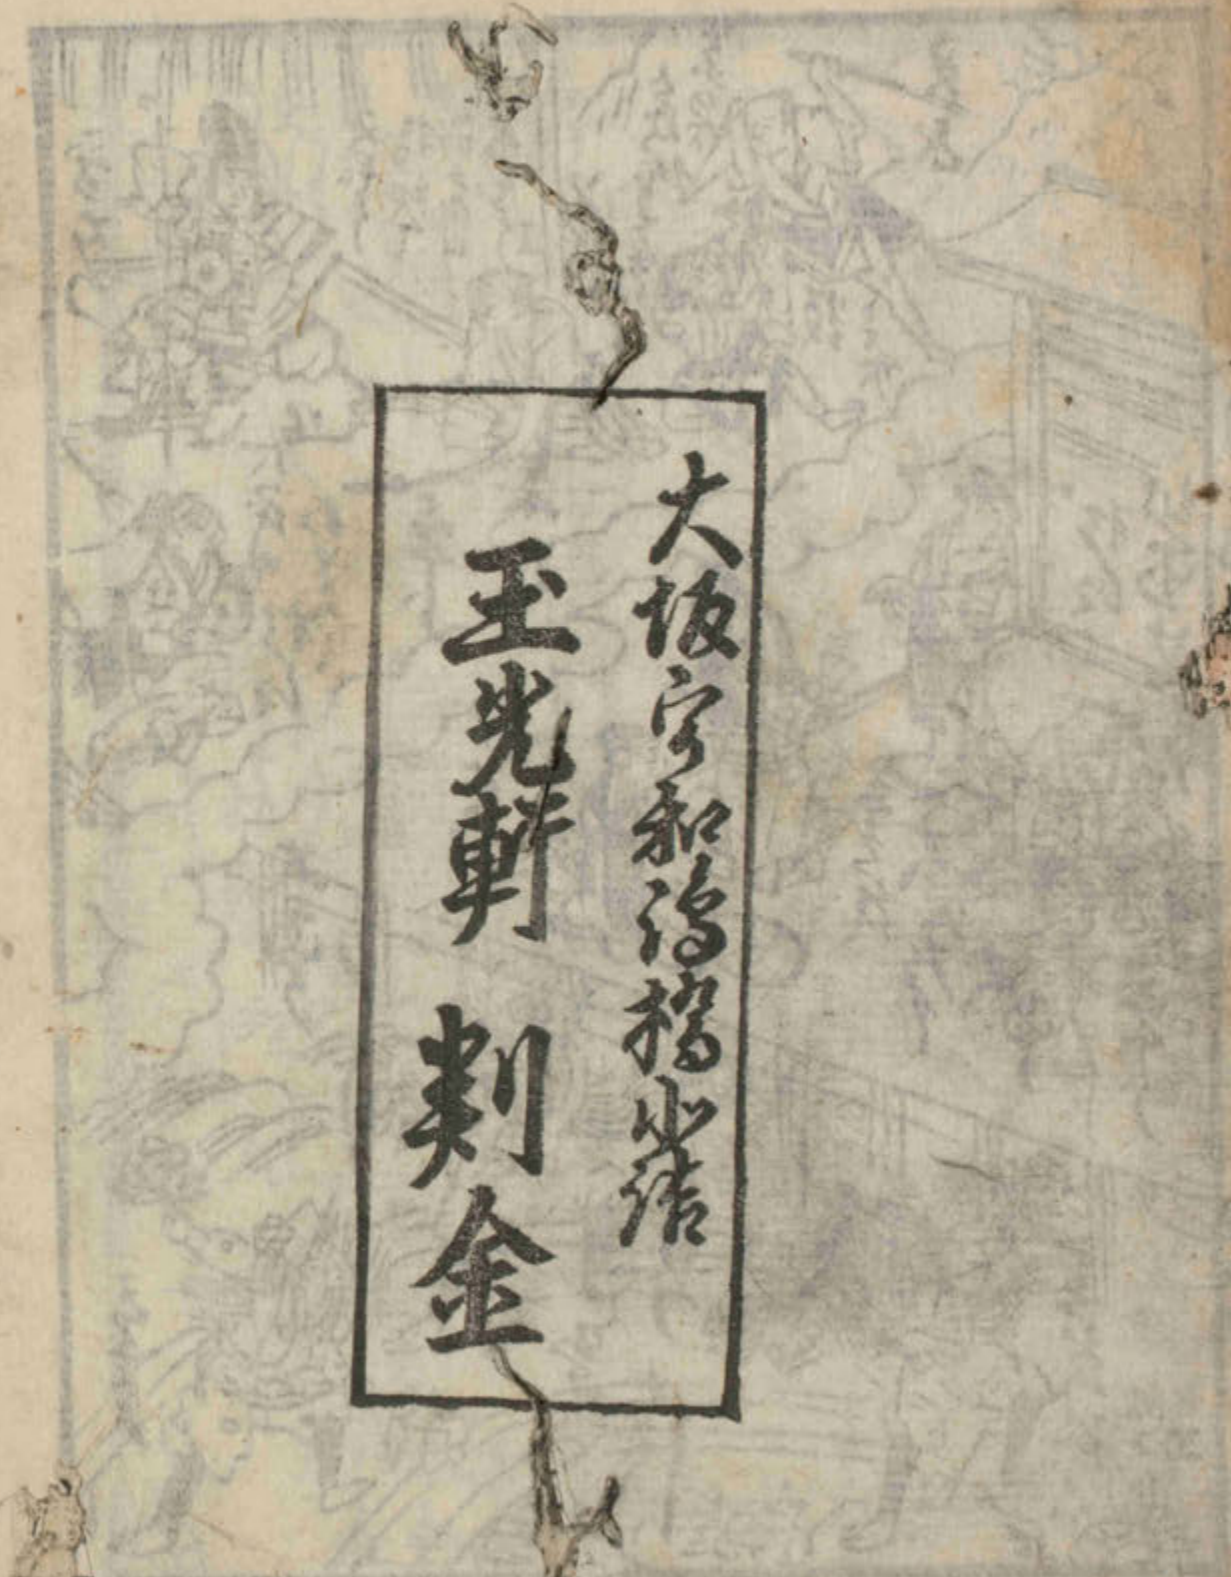 大坂宇和島橋北詰
玉光軒 判金